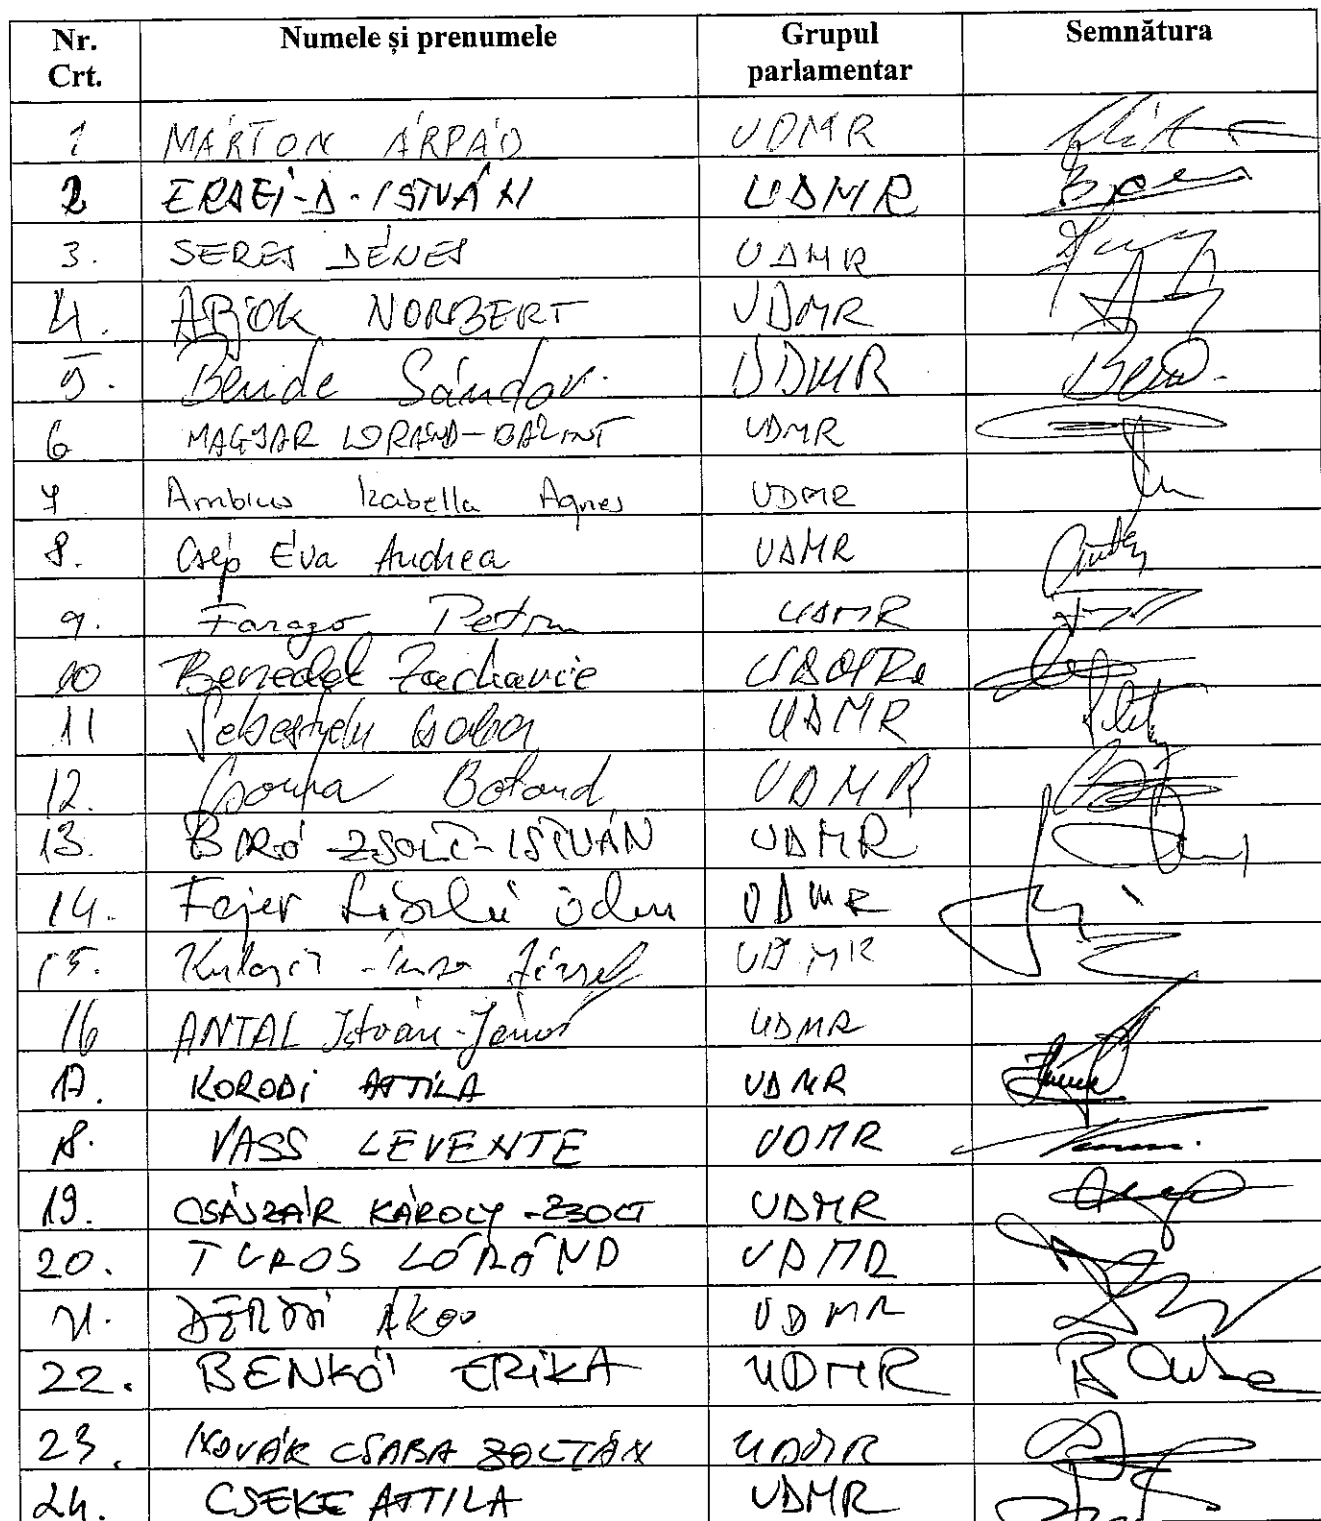 Nr. Crt. Numele și prenumele Grupul parlamentar Semnătura
1 MÁRTON ÁRPÁD UDMR
2 ERDEI-D-ISTVÁN UDMR
3. SERES DÉNES UDMR
4. APJOK NORBERT UDMR
5. Bende Sándor UDMR
6 MAGYAR LORAND-BÁLINT UDMR
7 Ambrus Izabella Agnes UDMR
8. Csép Éva Andrea UDMR
9. Farago Petru UDMR
10 Benedek Zacharie UDMR
11 Sebestyén Csaba UDMR
12. Csoma Botond UDMR
13. BIRÓ ZSOLT-ISTVÁN UDMR
14. Fejér László Ödön UDMR
15. József UDMR
16 ANTAL István-János UDMR
17. KORODI ATTILA UDMR
18. VASS LEVENTE UDMR
19. CSÁSZÁR KÁROLY-ZSOLT UDMR
20. TUROS LÓRÁND UDMR
21. DERZSI ÁKOS UDMR
22. BENKŐ ERIKA UDMR
23. NOVÁK CSABA ZOLTÁN UDMR
24. CSEKE ATTILA UDMR